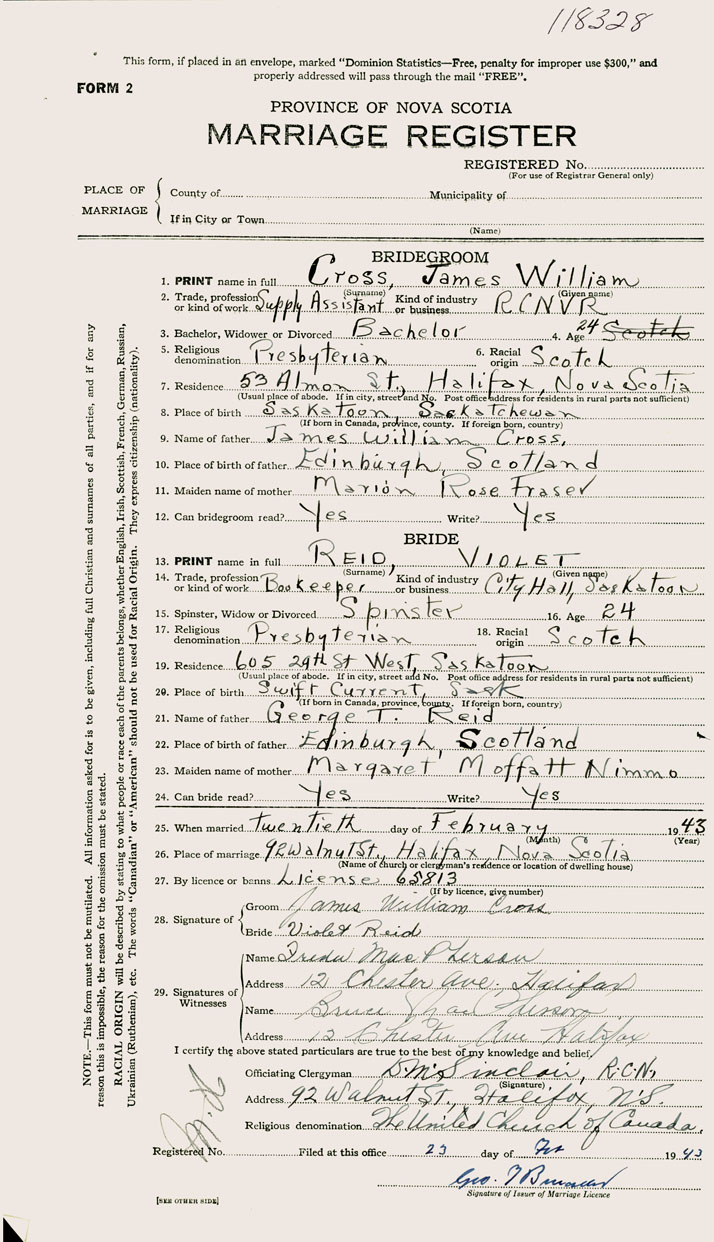 118328
This form, if placed in an envelope, marked "Dominion Statistics—Free, penalty for improper use $300," and
properly addressed will pass through the mail "FREE".
FORM 2
PROVINCE OF NOVA SCOTIA
MARRIAGE REGISTER
REGISTERED No.
(For use of Registrar General only)
PLACE OF MARRIAGE
County of
Municipality of
If in City or Town
(Name)
BRIDEGROOM
1. PRINT name in full Cross, James William
(Surname) (Given name)
2. Trade, profession or kind of work Supply Assistant Kind of industry or business RCNVR
3. Bachelor, Widower or Divorced Bachelor 4. Age 24 Scotch
5. Religious denomination Presbyterian 6. Racial origin Scotch
7. Residence 53 Almon St., Halifax, Nova Scotia
(Usual place of abode. If in city, street and No. Post office address for residents in rural parts not sufficient)
8. Place of birth Saskatoon, Saskatchewan
(If born in Canada, province, county. If foreign born, country)
9. Name of father James William Cross,
10. Place of birth of father Edinburgh, Scotland
11. Maiden name of mother Marion Rose Fraser
12. Can bridegroom read? Yes Write? Yes
BRIDE
13. PRINT name in full REID, VIOLET
(Surname) (Given name)
14. Trade, profession or kind of work Bookeeper Kind of industry or business City Hall, Saskatoon
15. Spinster, Widow or Divorced Spinster 16. Age 24
17. Religious denomination Presbyterian 18. Racial origin Scotch
19. Residence 605 29th St West, Saskatoon
(Usual place of abode. If in city, street and No. Post office address for residents in rural parts not sufficient)
20. Place of birth Swift Current, Sask
(If born in Canada, province, county. If foreign born, country)
21. Name of father George T. Reid
22. Place of birth of father Edinburgh, Scotland
23. Maiden name of mother Margaret Moffatt Nimmo
24. Can bride read? Yes Write? Yes
25. When married twentieth day of February 1943
(Month) (Year)
26. Place of marriage 92 Walnut St., Halifax, Nova Scotia
(Name of church or clergyman's residence or location of dwelling house)
27. By licence or banns License 65813
(If by licence, give number)
28. Signature of
Groom James William Cross
Bride Violet Reid
29. Signatures of Witnesses
Name Freda MacPherson
Address 12 Chester Ave. Halifax
Name Bruce MacPherson
Address 12 Chester Ave Halifax
I certify the above stated particulars are true to the best of my knowledge and belief.
Officiating Clergyman D. M. Sinclair, R.C.N.
(Signature)
Address 92 Walnut St., Halifax, N.S.
Religious denomination The United Church of Canada.
Registered No. Filed at this office 23 day of Feb 1943
Geo.
Signature of Issuer of Marriage Licence
[SEE OTHER SIDE]
NOTE.—This form must not be mutilated. All information asked for is to be given, including full Christian and surnames of all parties, and if for any
reason this is impossible, the reason for the omission must be stated.
RACIAL ORIGIN will be described by stating to what people or race each of the parents belongs, whether English, Irish, Scottish, French, German, Russian,
Ukrainian (Ruthenian), etc. The words "Canadian" or "American" should not be used for Racial Origin. They express citizenship (nationality).